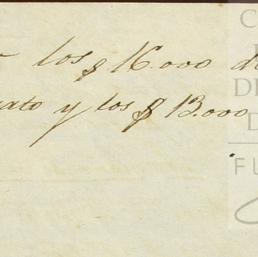 los $ 16.000 d
rato y los $ 13.000
C
DE
D
FU